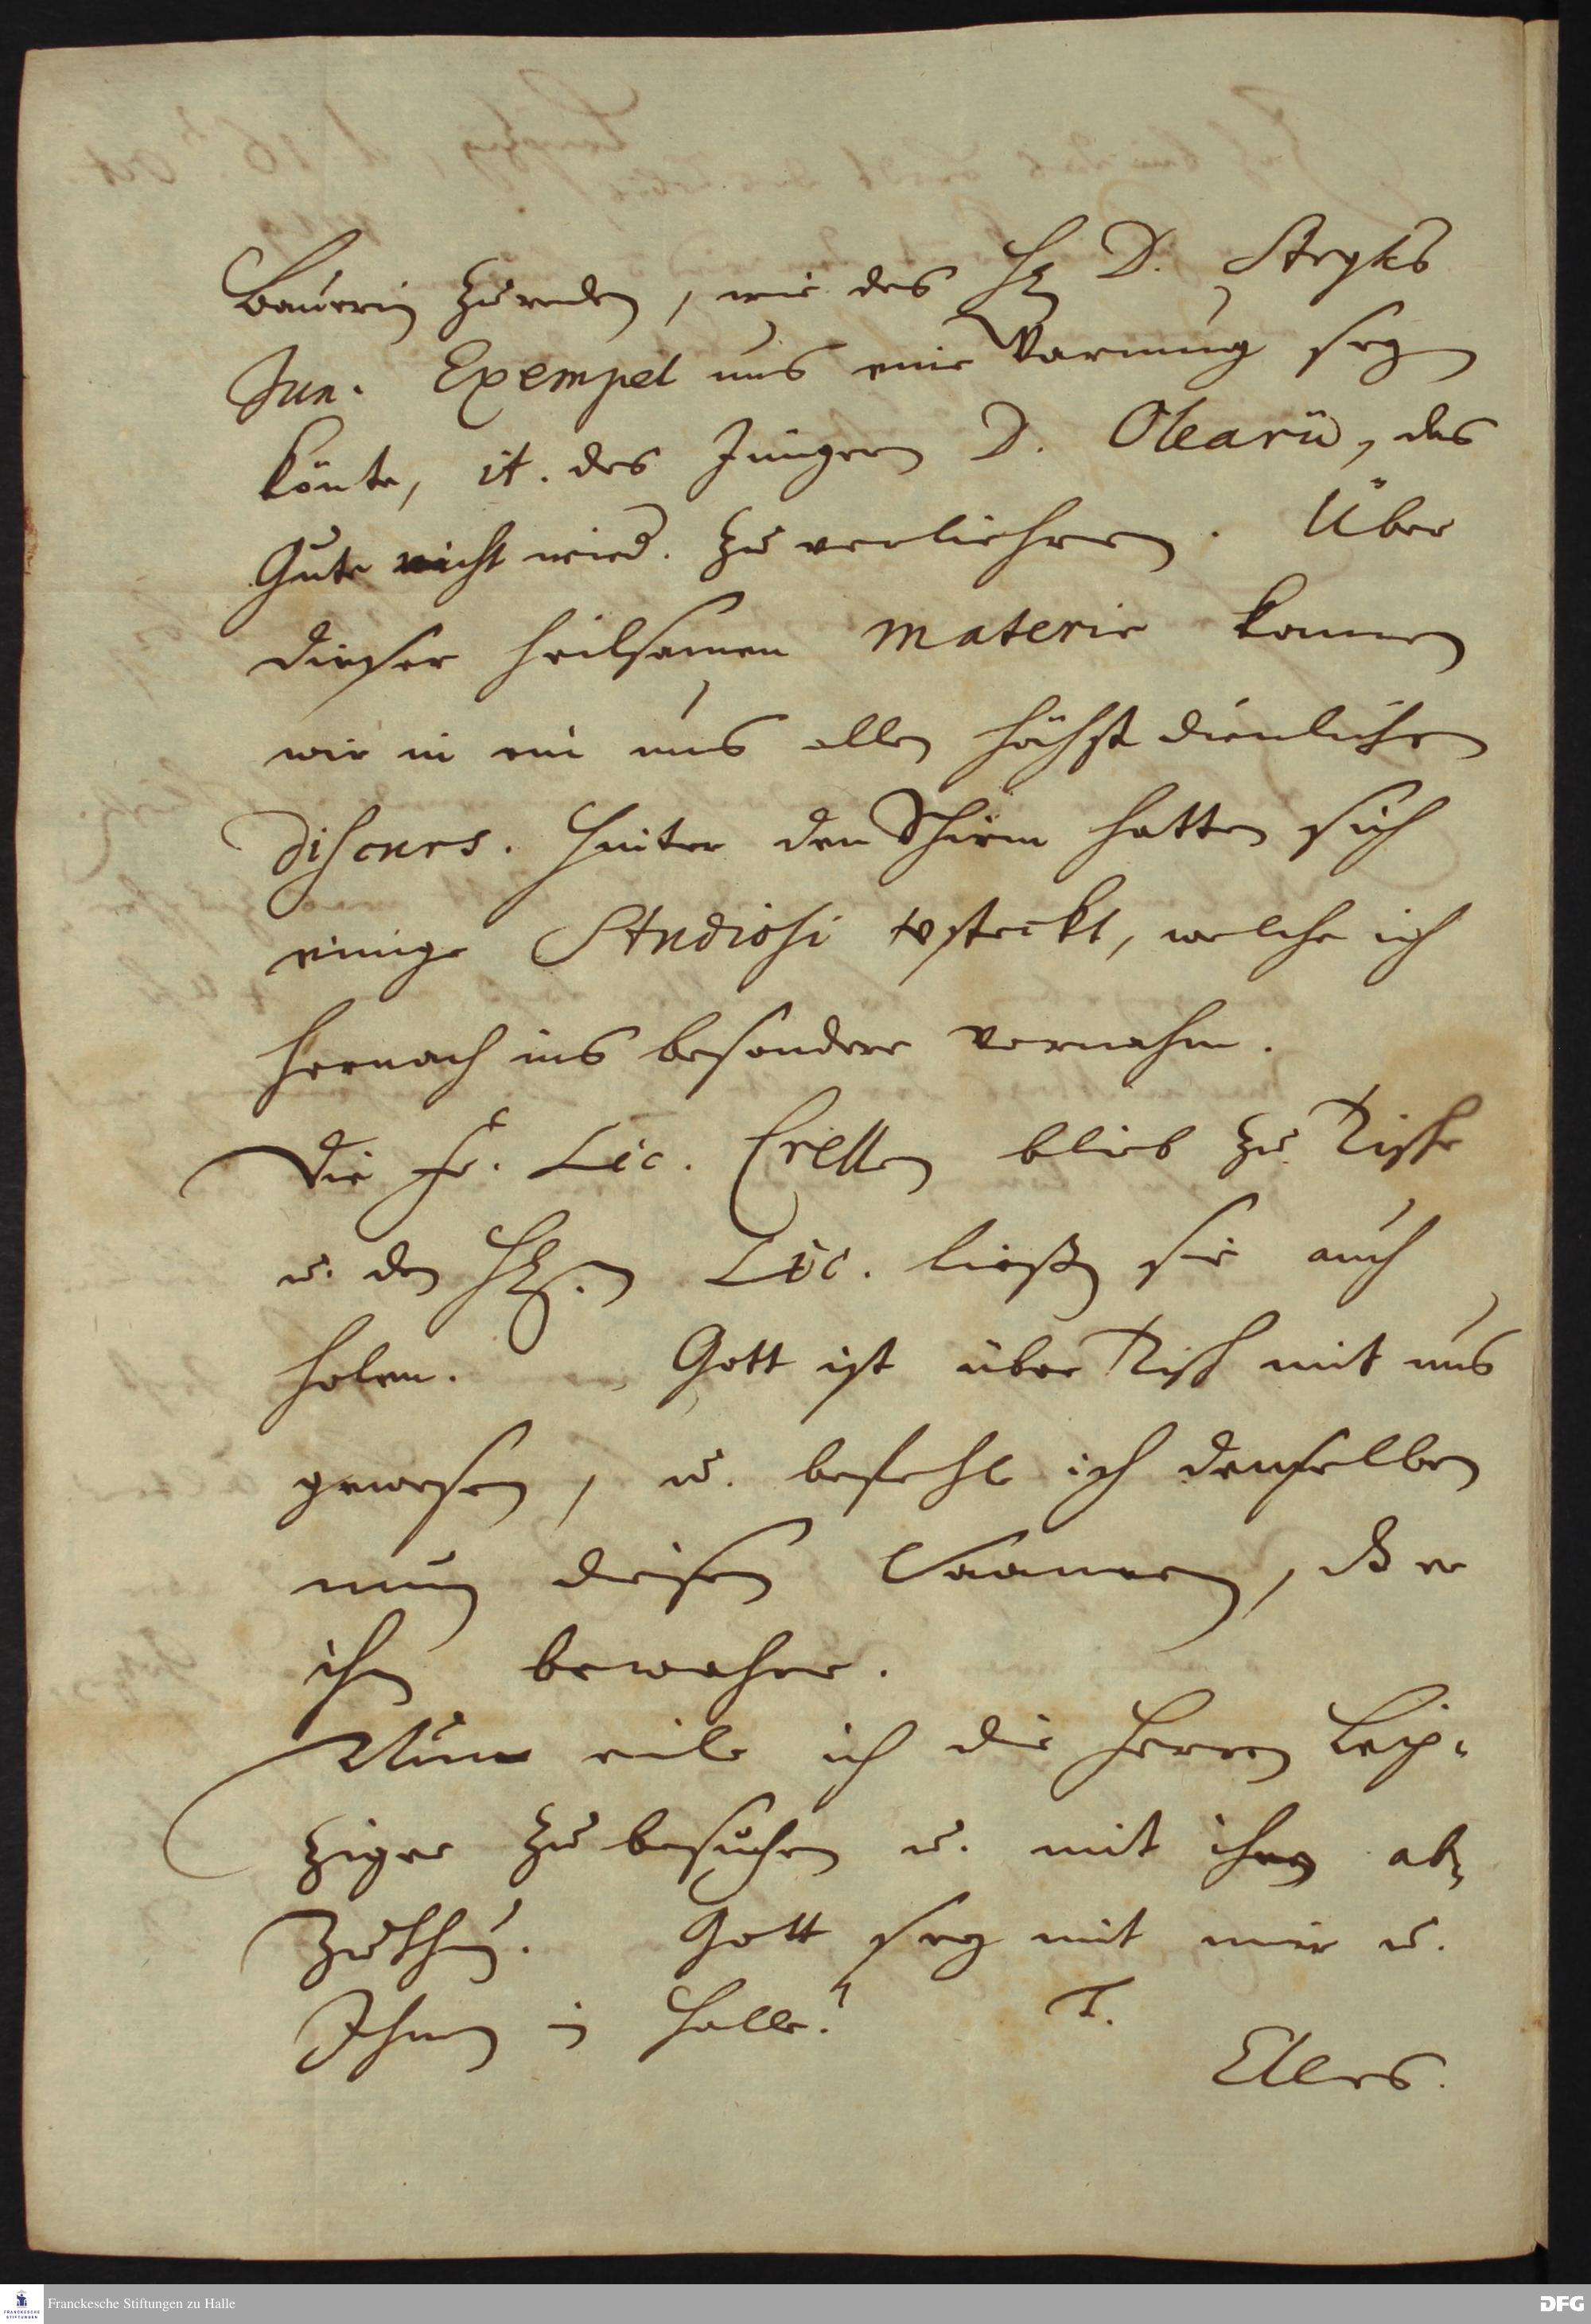 Bauerin zu reden, wie des H D. Stryks
Jun. Exempel uns eine Warnung seyn
könte, it. des Jüngern D. Olearii, das
Gute nicht wied. zu verliehren. Über
dieser heilsamen materie kamen
wir in ein uns allen höchst dienlichen
discurs. Hinter den Schirm hatten sich
einige Studiosi versteckt, welche ich
hernach ins besondere vornahm.
Die Fr. Lic. Crellen blieb zu Tische
u. den H.n Lic. ließ sie auch
holen. Gott ist über Tisch mit uns
gewesen, u. befehle ich denselben
nun diesen Saamen, dß er
ihn bewahre.
Nun eile ich die Herren Leip-
ziger zu besuchen u. mit ihnen ab-
zuthun. Gott sey mit mir u.
Ihnen in Halle! T.
Elers.
Franckesche Stiftungen zu Halle
FRANCKESCHE STIFTUNGEN
DFG